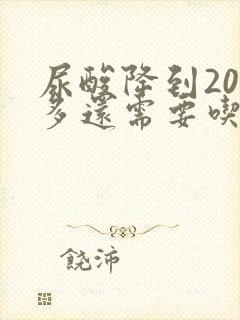 尿酸降到20
多還需要喫
饒沛